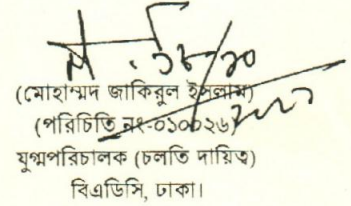 (মোহাম্মদ জাকিরুল ইসলাম)
(পরিচিতি নং-০১০০২৬)
যুগ্মপরিচালক (চলতি দায়িত্ব)
বিএডিসি, ঢাকা।